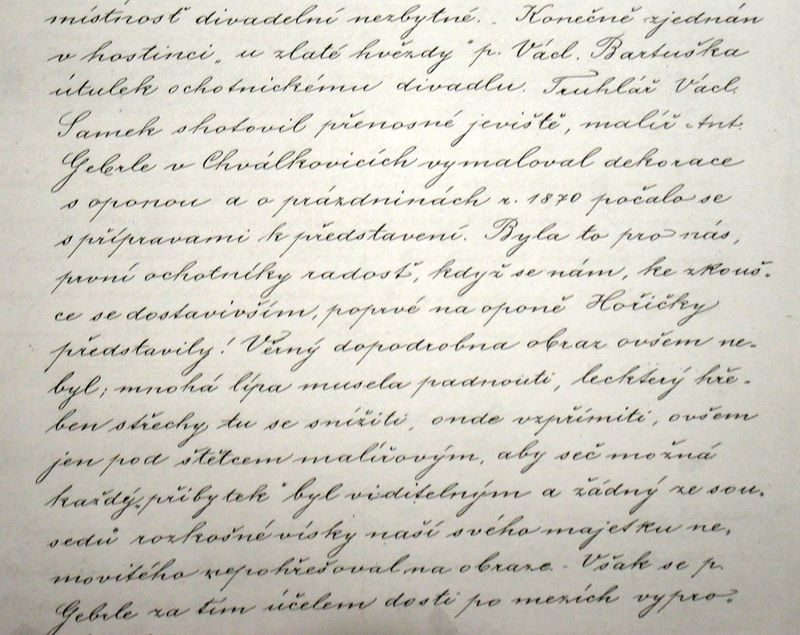 místnosť divadelní nezbytné. - Konečně zjednán
v hostinci „u zlaté hvězdy" p. Václ. Bartuška
útulek ochotnickému divadlu. Truhlář Václ.
Samek shotovil přenosné jeviště, malíř Ant.
Gebrle v Chválkovicích vymaloval dekorace
s oponou a o prázdninách r. 1870 počalo se
s přípravami k představení. Byla to pro nás,
první ochotníky radosť, když se nám, ke zkouš-
ce se dostavivším, poprvé na oponě Hořičky
představily! Věrný dopodrobna obraz ovšem ne-
byl; mnohá lípa musela padnouti, leckterý hře-
ben střechy tu se snížiti, onde vzpřímiti, ovšem
jen pod štětcem malířovým, aby seč možná
každý „příbytek" byl viditelným a žádný ze sou-
sedů rozkošné vísky naší svého majetku ne-
movitého nepohřešoval na obraze. - Však se p.
Gebrle za tím účelem dosti po mezích vypro-